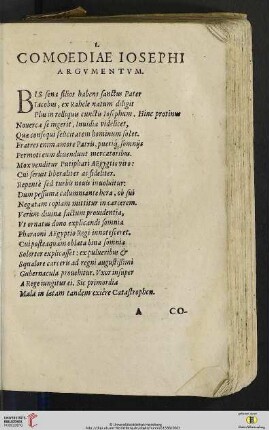 I.
COMOEDIAE IOSEPHI
ARGVMENTVM.
BIS senos filios habens sanctus Pater
Iacobus, ex Rahele natum diligit
Plus in reliquis cunctis Iosephum. Hinc protinus
Nouerca se ingerit, Inuidia videlicet,
Quae consequi felicitatem hominum solet.
Fratres enim amore Patris, pueriq́; somnijs
Permoti eum deuendunt mercatoribus.
Mox venditur Putiphari Aegyptio viro:
Cui seruit liberaliter ac fideliter.
Repentè sed turbis nouis inuoluitur:
Dum pessima calumniante hera, ob sui
Negatam copiam mittitur in carcerem.
Verùm diuina factum prouidentia,
Vt ornatus dono explicandi somnia
Pharaoni Aegyptio Regi innotesceret.
Cui postquam oblata bina somnia
Solerter explicasset: ex pulueribus &
Squalore carceris ad regni augustissimi
Gubernacula prouehitur. Vxor insuper
A Rege iungitur ei. Sic primordia
Mala in laetam tandem exiêre Catastrophen.
A CO-
UNIVERSITÄTS-
BIBLIOTHEK
HEIDELBERG
© Universitätsbibliothek Heidelberg